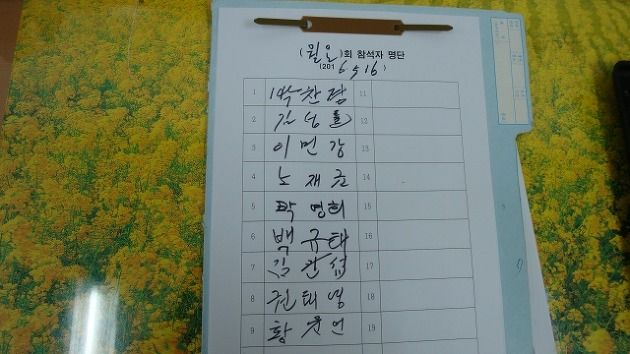 (월요)회 참석자 명단
(2016 5 16)
1 박찬림 11
2 김성률 12
3 이면강 13
4 노재근 14
5 박영희 15
6 백규태 16
7 김관섭 17
8 권태영 18
9 황운언 19